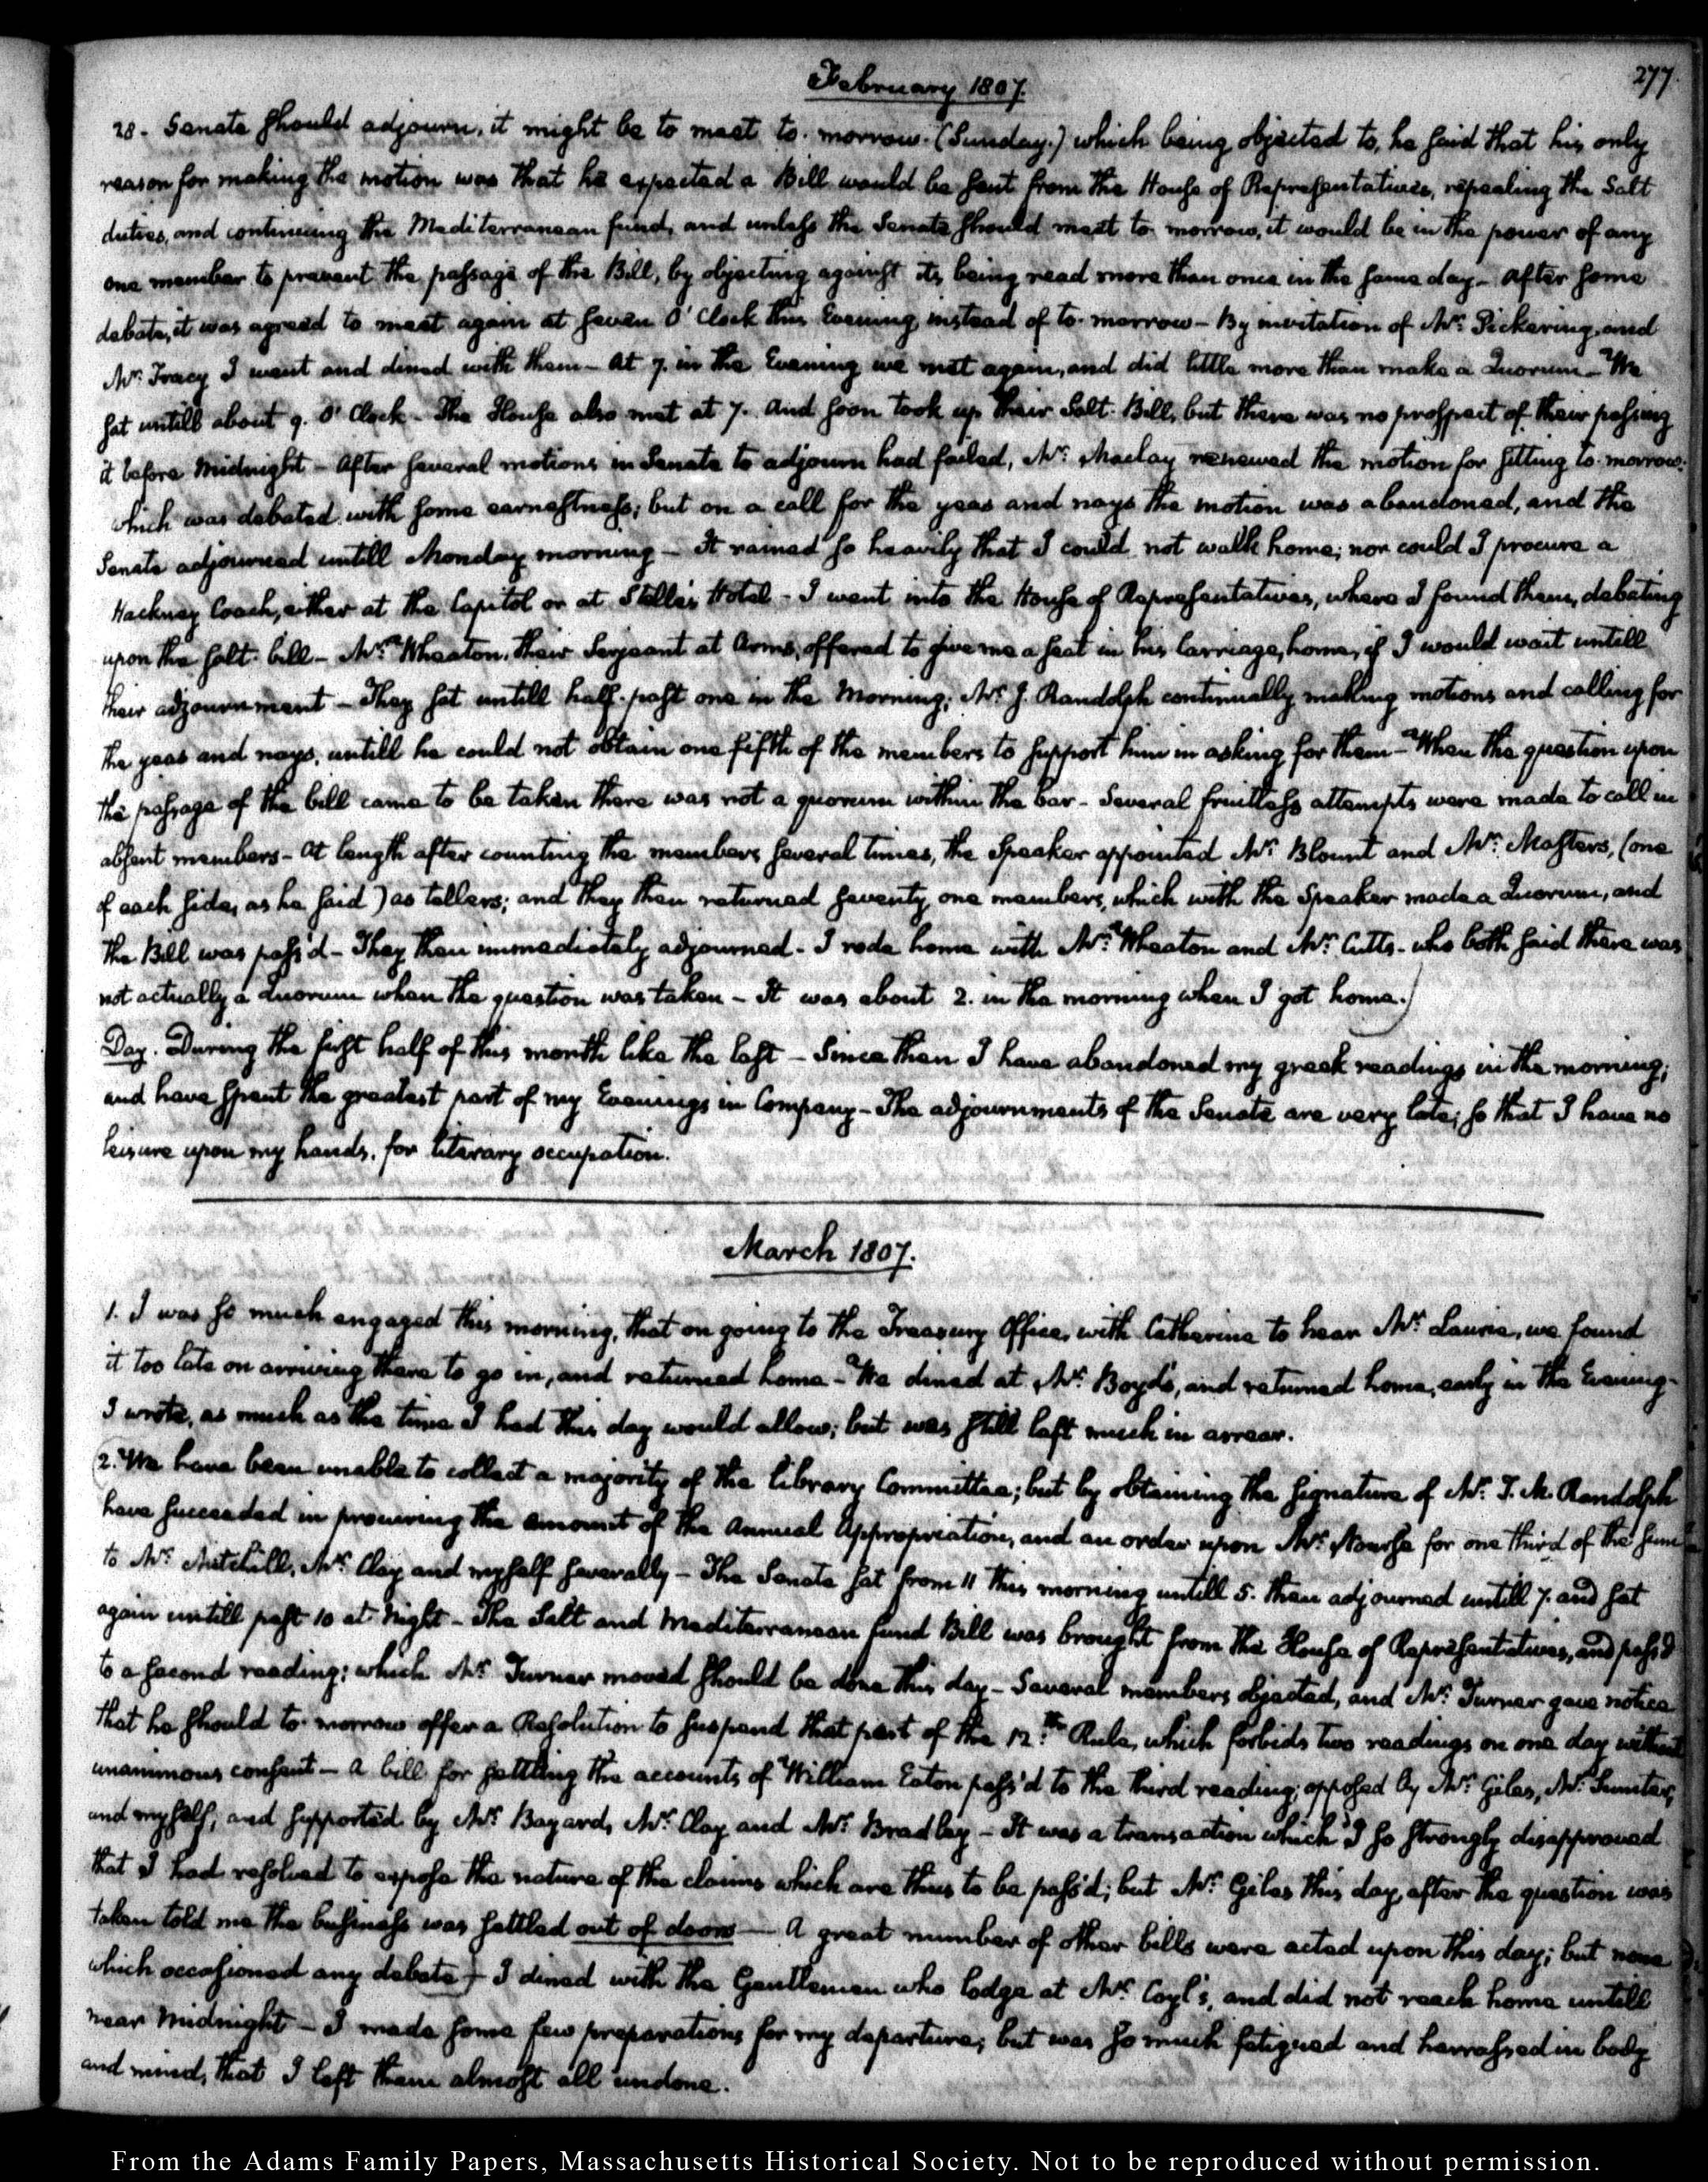 February 1807.
277.
28. Senate should adjourn, it might be to meet to-morrow. (Sunday.) which being objected to, he said that his only
reason for making the motion was that he expected a Bill would be sent from the House of Representatives, repealing the Salt
duties, and continuing the Mediterranean fund, and unless the Senate should meet to-morrow, it would be in the power of any
one member to prevent the passage of the Bill, by objecting against its being read more than once in the same day - After some
debate, it was agreed to meet again at seven O'Clock this Evening, instead of to-morrow - By invitation of Mr: Pickering, and
Mr: Tracy I went and dined with them - At 7. in the Evening we met again, and did little more than make a Quorum - We
sat untill about 9. O'Clock - The House also met at 7. and soon took up their Salt-Bill, but there was no prospect of their passing
it before Midnight - After several motions in Senate to adjourn had failed, Mr: Maclay renewed the motion for sitting to-morrow;
which was debated with some earnestness; but on a call for the yeas and nays the motion was abandoned, and the
Senate adjourned untill Monday morning - It rained so heavily that I could not walk home; nor could I procure a
Hackney Coach, either at the Capitol or at Stelle's Hotel - I went into the House of Representatives, where I found them, debating
upon the salt-bill - Mr: Wheaton, their Serjeant at Arms, offered to give me a seat in his carriage, home, if I would wait untill
their adjournment - They sat untill half-past one in the Morning; Mr: J. Randolph continually making motions and calling for
the yeas and nays, untill he could not obtain one fifth of the members to support him in asking for them - When the question upon
the passage of the bill came to be taken there was not a quorum within the bar - Several fruitless attempts were made to call in
absent members - At length after counting the members several times, the Speaker appointed Mr: Blount and Mr: Masters, (one
of each side, as he said) as tellers; and they then returned seventy one members, which with the Speaker made a Quorum, and
the Bill was pass'd - They then immediately adjourned - I rode home with Mr: Wheaton and Mr: Cutts - who both said there was
not actually a Quorum when the question was taken - It was about 2. in the morning when I got home.)
Day. During the first half of this month like the last - Since then I have abandoned my greek readings in the morning;
and have spent the greatest part of my Evenings in Company - The adjournments of the Senate are very late; so that I have no
leisure upon my hands, for literary occupation.
March 1807.
1. I was so much engaged this morning, that on going to the Treasury Office, with Catherine to hear Mr: Laurie, we found
it too late on arriving there to go in, and returned home - We dined at Mr: Boyd's, and returned home, early in the Evening -
I wrote, as much as the time I had this day would allow; but was still left much in arrear.
2. We have been unable to collect a majority of the Library Committee; but by obtaining the signature of Mr: T. M. Randolph
have succeeded in procuring the amount of the Annual Appropriation, and an order upon Mr: Nourse for one third of the sum
to Mr: Mitchill, Mr: Clay and myself severally - The Senate sat from 11 this morning untill 5. then adjourned untill 7. and sat
again untill past 10 at Night - The Salt and Mediterranean fund Bill was brought from the House of Representatives, and pass'd
to a second reading; which Mr: Turner moved should be done this day - Several members objected, and Mr: Turner gave notice
that he should to-morrow offer a Resolution to suspend that part of the 12th: Rule, which forbids two readings on one day without
unanimous consent - A bill for settling the accounts of William Eaton pass'd to the third reading; opposed by Mr: Giles, Mr: Sumter,
and myself; and supported by Mr: Bayard, Mr: Clay and Mr: Bradley - It was a transaction which I so strongly disapproved
that I had resolved to expose the nature of the claims which are thus to be pass'd; but Mr: Giles this day, after the question was
taken told me the business was settled out of doors - A great number of other bills were acted upon this day; but none
which occasioned any debate - I dined with the Gentlemen who lodge at Mr: Coyl's, and did not reach home untill
near Midnight - I made some few preparations for my departure; but was so much fatigued and harrassed in body
and mind, that I left them almost all undone.
From the Adams Family Papers, Massachusetts Historical Society. Not to be reproduced without permission.